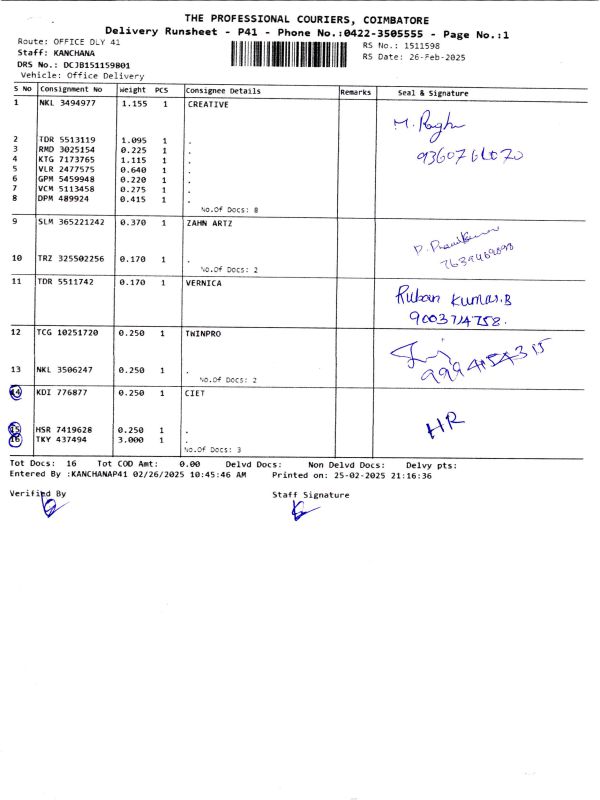 THE PROFESSIONAL COURIERS, COIMBATORE
Delivery Runsheet - P41 - Phone No.:0422-3505555 - Page No.:1
Route: OFFICE DLY 41 RS No.: 1511598
Staff: KANCHANA RS Date: 26-Feb-2025
DRS No.: DCJB151159801
Vehicle: Office Delivery
S No Consignment No Weight PCS Consignee Details Remarks Seal & Signature
1 NKL 3494977 1.155 1 CREATIVE
M. Raghu
2 TDR 5513119 1.095 1 .
3 RMD 3025154 0.225 1 .
4 KTG 7173765 1.115 1 .
5 VLR 2477575 0.640 1 .
6 GPM 5459948 0.220 1 .
7 VCM 5113458 0.275 1 .
8 DPM 489924 0.415 1 .
No.Of Docs: 8
9 SLM 365221242 0.370 1 ZAHN ARTZ
10 TRZ 325502256 0.170 1 .
No.Of Docs: 2
11 TDR 5511742 0.170 1 VERNICA
Ruban Kumar.B
9003714758.
12 TCG 10251720 0.250 1 TWINPRO
13 NKL 3506247 0.250 1 .
No.Of Docs: 2
14 KDI 776877 0.250 1 CIET
HR
15 HSR 7419628 0.250 1 .
16 TKY 437494 3.000 1 .
No.Of Docs: 3
Tot Docs: 16 Tot COD Amt: 0.00 Delvd Docs: Non Delvd Docs: Delvy pts:
Entered By :KANCHANAP41 02/26/2025 10:45:46 AM Printed on: 25-02-2025 21:16:36
Verified By Staff Signature